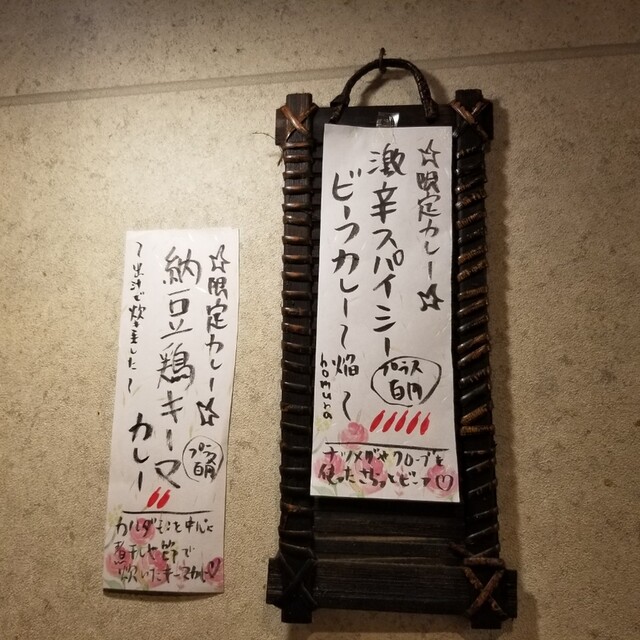 ☆限定カレー☆
激辛スパイシー
ビーフカレー〜焔〜
homura
プラス
百円
ナツメグやクローブを
使ったごちっとビーフ♡
☆限定カレー☆
納豆鶏キーマ
カレー
プラス
百円
〜出汁で炊きました〜
カルダモンを中心に
煮干しと節で
炊いたキーマカレー♡